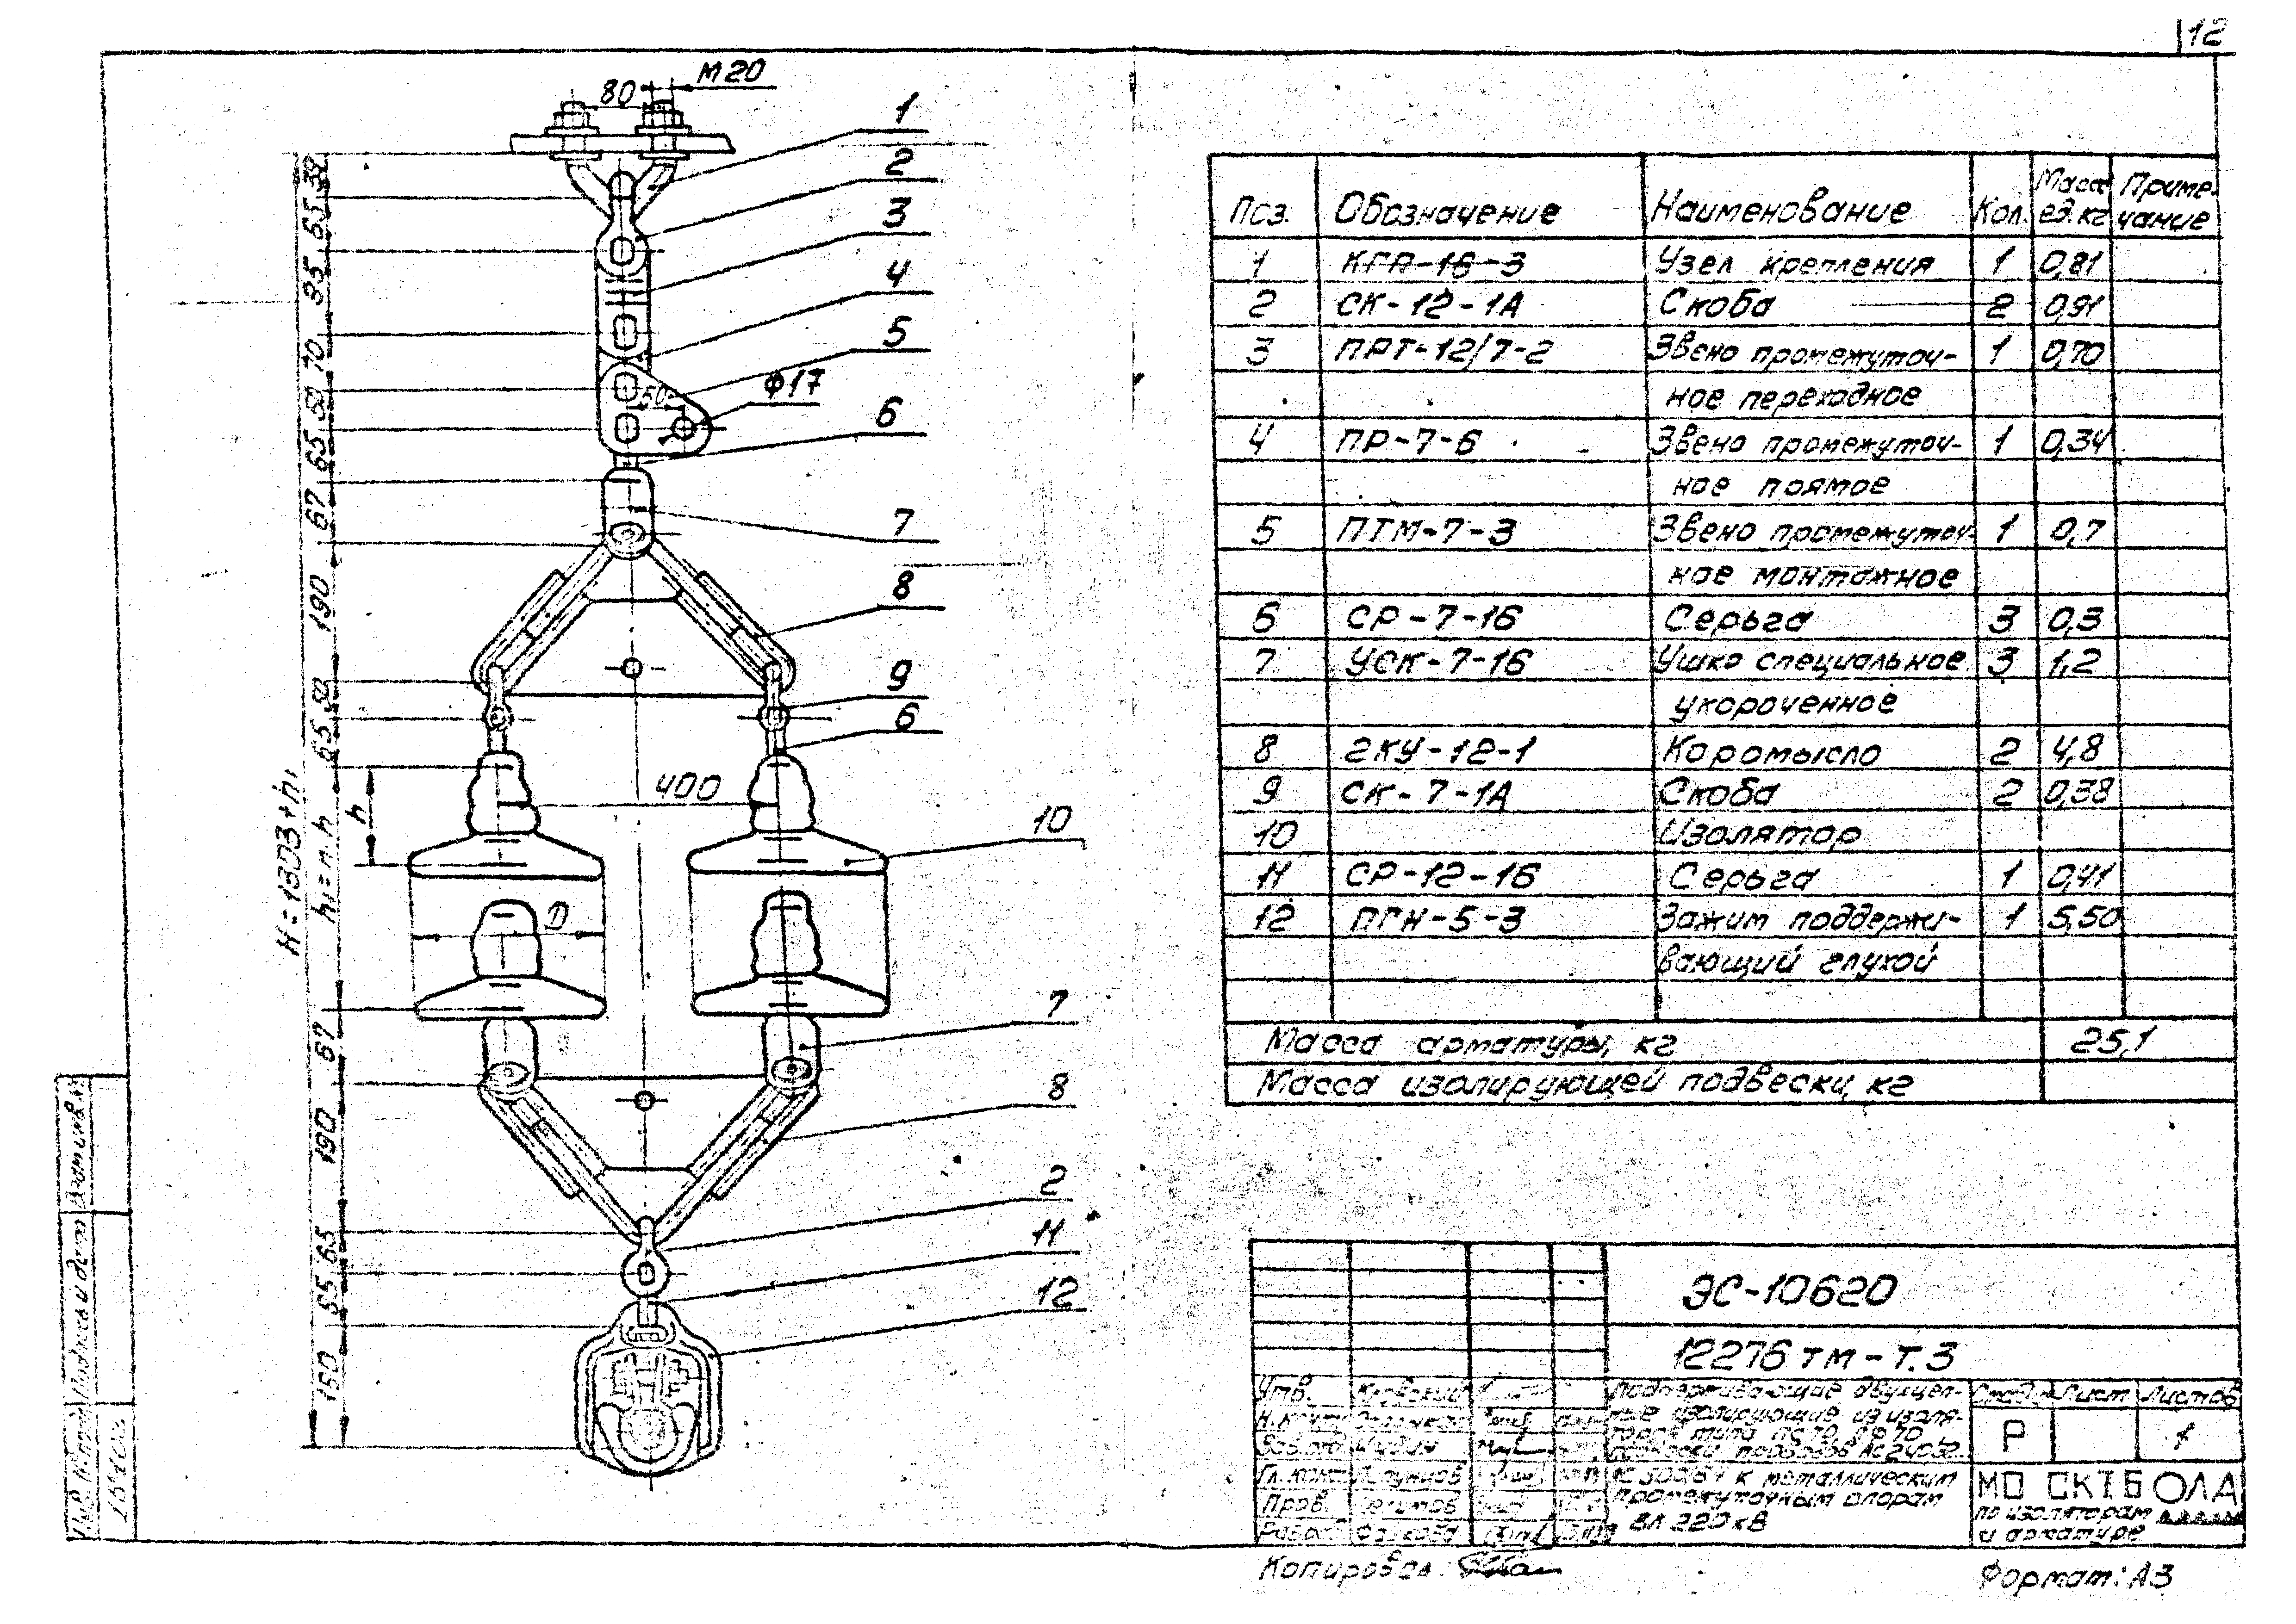 12
M20
80
1
2
3
4
5
50
Ф17
6
7
8
9
6
400
10
D
h
7
8
2
11
12
39
65
95
70
50
65
67
190
50
65
h₁=n·h
H=1303+h₁
67
190
65
55
160
Поз. Обозначение Наименование Кол. Масса ед. кг Приме-чание
1 КГП-16-3 Узел крепления 1 0,81
2 СК-12-1А Скоба 2 0,91
3 ПРТ-12/7-2 Звено промежуточ- 1 0,70
ное переходное
4 ПР-7-6 Звено промежуточ- 1 0,34
ное прямое
5 ПТМ-7-3 Звено промежуточ- 1 0,7
ное монтажное
6 СР-7-16 Серьга 3 0,3
7 УСК-7-16 Ушко специальное 3 1,2
укороченное
8 2КУ-12-1 Коромысло 2 4,8
9 СК-7-1А Скоба 2 0,38
10 Изолятор
11 СР-12-16 Серьга 1 0,41
12 ПГН-5-3 Зажим поддержи- 1 5,50
вающий глухой
Масса арматуры, кг 25,1
Масса изолирующей подвески, кг
ЭС-10620
12276 тм-т.3
Утв.
Пров.
Поддерживающие двухцеп-
ные изолирующие из изоля-
торов типа ПС70, ПФ70
подвески проводов АС240/32
к металлическим
промежуточным опорам
ВЛ 220кВ
Стадия Лист Листов
Р 1
МО СКТБ
по изоляторам
и арматуре
Подпись и дата
Копировал:
Формат: А3